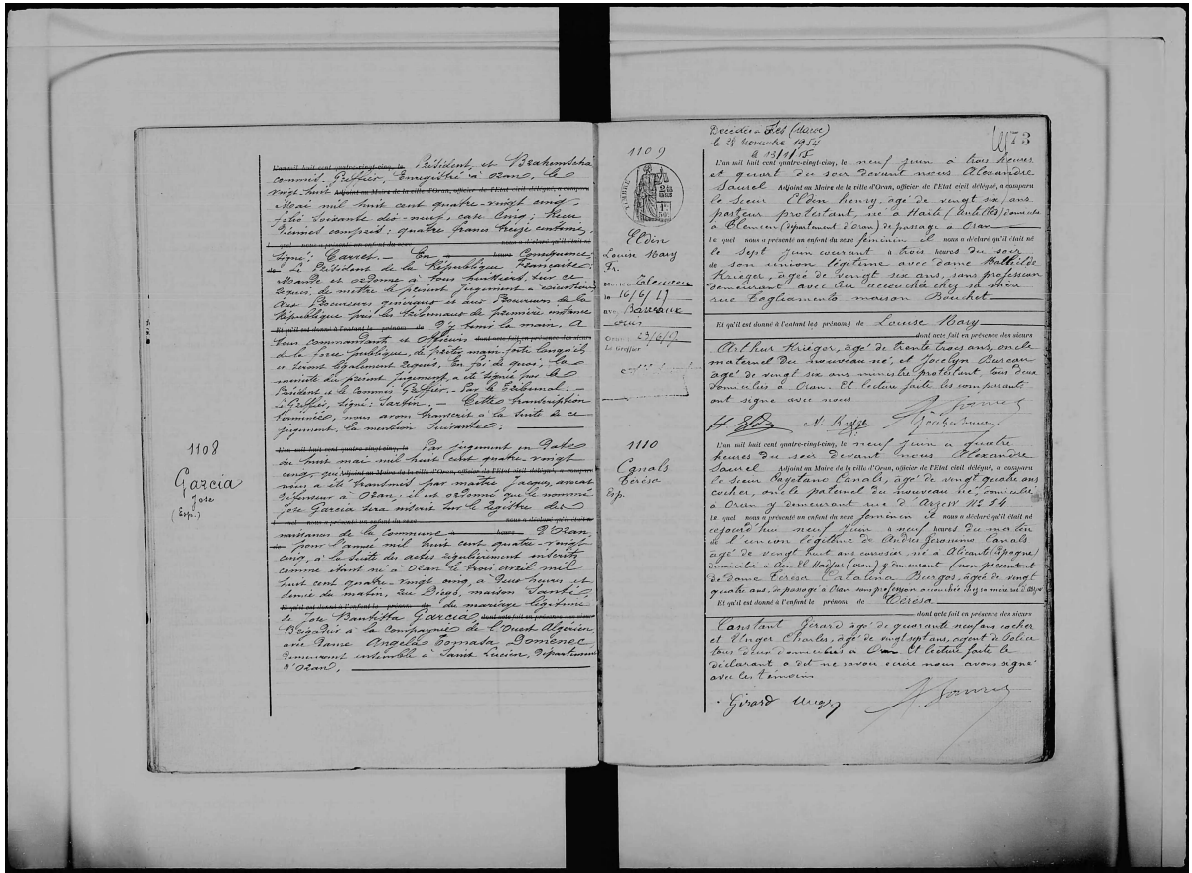 L'an mil huit cent quatre-vingt-cinq, le Président, et Brahemscha
commis Greffier, Enregistré à Oran, le
vingt-huit Adjoint au Maire de la ville d'Oran, officier de l'Etat civil délégué, a comparu
Mai mil huit cent quatre-vingt cinq,
folio soixante dix-neuf, case cinq; Reçu
compris: quatre francs treize centimes,
quel nous a présenté un enfant du sexe nous a déclaré qu'il était né
Signé: Carret. En heures Conséquence
de Le Président de la République Française
Mande et ordonne à tous huissiers sur ce
requis, de mettre le présent jugement à exécution
Aux Procureurs généraux et aux Procureurs de la
République près les tribunaux de première instance
Et qu'il est donné à l'enfant le prénom de D'y tenir la main, A
tous commandants et officiers dont acte fait, en présence des sieurs
de la force publique, de prêter main-forte lorsqu'ils
en seront légalement requis. En foi de quoi, la
minute du présent jugement, a été signée par le
Président et le commis Greffier. Par le Tribunal.
le Greffier, signé: Cette transcription
terminée, nous avons transcrit à la suite de ce
jugement, la mention suivante:
1108
Garcia
Jose
(Esp.)
L'an mil huit cent quatre-vingt-cinq, le Par jugement en Date
du huit mai mil huit cent quatre-vingt
cinq, qui Adjoint au Maire de la ville d'Oran, officier de l'Etat civil délégué, a comparu
nous a été transmis par maître Jacques, avocat
défenseur à Oran; il est ordonné que le nommé
Jose Garcia sera inscrit sur le registre des
quel nous a présenté un enfant du sexe nous a déclaré qu'il était né
naissances de la commune heures D'Oran,
de pour l'année mil huit cent quatre-vingt
cinq, à la suite des actes régulièrement inscrits
comme étant né à Oran le trois avril mil
huit cent quatre-vingt cinq, à deux heures et
demie du matin, rue Diego, maison Santi,
Et qu'il est donné à l'enfant le prénom de du mariage légitime
de Jose Bautitta Garcia, dont acte fait en présence des sieurs
Brigadier à la compagnie de l'Ouest Algérien
avec Dame Angela Tomasa Domenec
Demeurant ensemble à Saint Lucien, Département
d'Oran,
1109
TIMBRE
Eldin
Louise Mary
Fr.
16/6/17
avec Barraux
Oran 23/6/17
Le Greffier
Décédée à Fès (Maroc)
le 28 Novembre 1954
173
L'an mil huit cent quatre-vingt-cinq, le neuf Juin à trois heures
et quart du soir devant nous Alexandre
Saurel Adjoint au Maire de la ville d'Oran, officier de l'Etat civil délégué, a comparu
le Sieur Eldin Henry, âgé de vingt six ans,
pasteur protestant, né à Haïti (Antilles) domicilié
à Tlemcen (département d'Oran) de passage à Oran
Le quel nous a présenté un enfant du sexe féminin il nous a déclaré qu'il était né
le sept Juin courant à trois heures du soir
de son union légitime avec dame Mathilde
Krieger, âgée de vingt six ans, sans profession
demeurant avec lui accouchée chez sa mère
rue Tagliamento maison Bouchet
Et qu'il est donné à l'enfant les prénoms de Louise Mary
dont acte fait en présence des sieurs
Arthur Krieger, âgé de trente trois ans, oncle
maternel du nouveau né, et Jocelyn Bureau
âgé de vingt six ans ministre protestant, tous deux
domiciliés à Oran. Et lecture faite les comparants
ont signé avec nous
H. Eldin
1110
Canals
Térésa
Esp.
L'an mil huit cent quatre-vingt-cinq, le neuf Juin à quatre
heures du soir devant nous Alexandre
Saurel Adjoint au Maire de la ville d'Oran, officier de l'Etat civil délégué, a comparu
le sieur Cayetano Canals, âgé de vingt quatre ans
cocher, oncle paternel du nouveau né, domicilié
à Oran y demeurant rue d'Arzew No 54
Le quel nous a présenté un enfant du sexe féminin il nous a déclaré qu'il était né
cejourd'hui neuf Juin à neuf heures du matin
de l'union légitime de Andrés Geronimo Canals
âgé de vingt huit ans carrossier, né à Alicante (Espagne)
domicilié à Aïn El Hadjar (Oran) y demeurant (non présent) et
de dame Teresa Catalina Burgos, âgée de vingt
quatre ans, de passage à Oran sans profession accouchée chez sa mère rue d'Arzew
Et qu'il est donné à l'enfant le prénom de Térésa
dont acte fait en présence des sieurs
Constant Gérard âgé de quarante neuf ans cocher
et Unger Charles, âgé de vingt sept ans, agent de Police
tous deux domiciliés à Oran. Et lecture faite le
déclarant a dit ne savoir écrire nous avons signé
avec les témoins
Gérard Unger